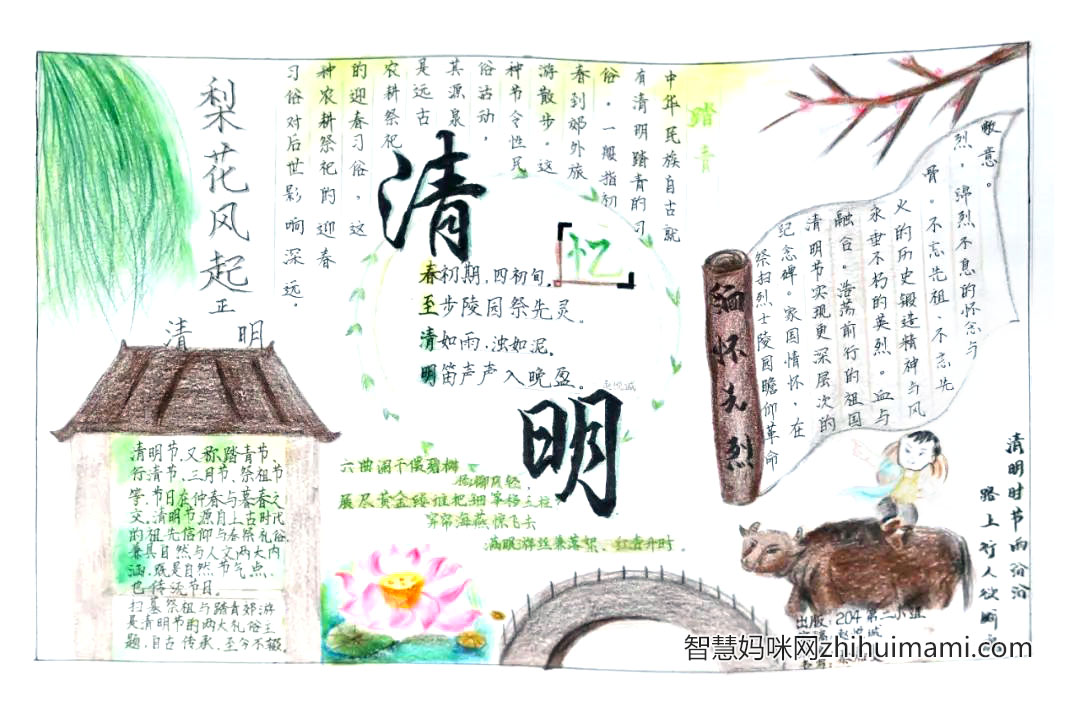 梨花风起正
清明
踏青
中华民族自古就
有清明踏青的习
俗。一般指初
春到郊外旅
游散步。这
种节令性民
俗活动，
其源泉
是远古
农耕祭祀
的迎春习俗，这
种农耕祭祀的迎春
习俗对后世影响深远。
清
忆
春初期，四初旬。
至步陵园祭先灵。
清如雨，浊如泥。
明笛声声入晚盈。
明
缅怀先烈
祭扫烈士陵园瞻仰革命
纪念碑。家国情怀，在
清明节实现更深层次的
融合。浩荡前行的祖国
永垂不朽的英烈。血与
火的历史锻造精神与风
骨。不忘先祖、不忘先
烈，绵烈不息的怀念与
敬意。
清明节，又称踏青节、
行清节、三月节、祭祖节
等，节日在仲春与暮春之
交。清明节源自上古时代
的祖先信仰与春祭礼俗，
兼具自然与人文两大内
涵，既是自然节气点，
也传统节日。
扫墓祭祖与踏青郊游
是清明节的两大礼俗主
题，自古传承，至今不辍。
六曲阑干偎碧树
杨柳风轻，
展尽黄金缕
穿帘海燕惊飞去
满眼游丝兼落絮，红杏开时，
清明时节雨纷纷
路上行人欲断
出版：204第二小组
智慧妈咪网zhihuimami.com